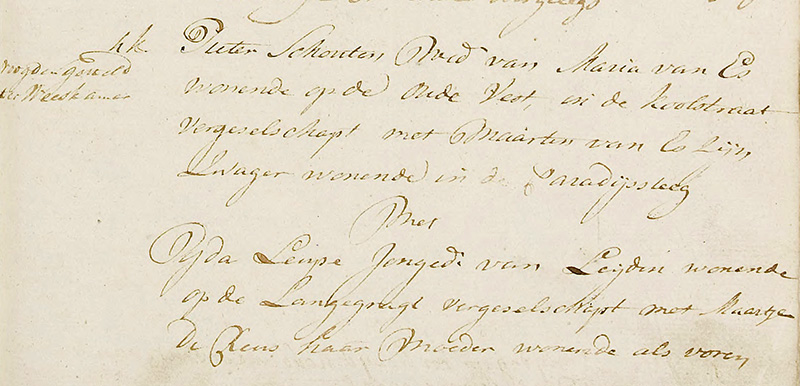 h.k.
Pieter Schouten Wed.r van Maria van Es
wonende op de Oude Vest, in de koolstraat
vergeselschapt met Maarten van Es Zijn
Zwager wonende in de Paradijssteeg
Met
Ifda Leupe Jonged. van Leijden wonende
op de Langegragt vergeselschapt met Maartje
De Reus haar Moeder wonende als voren